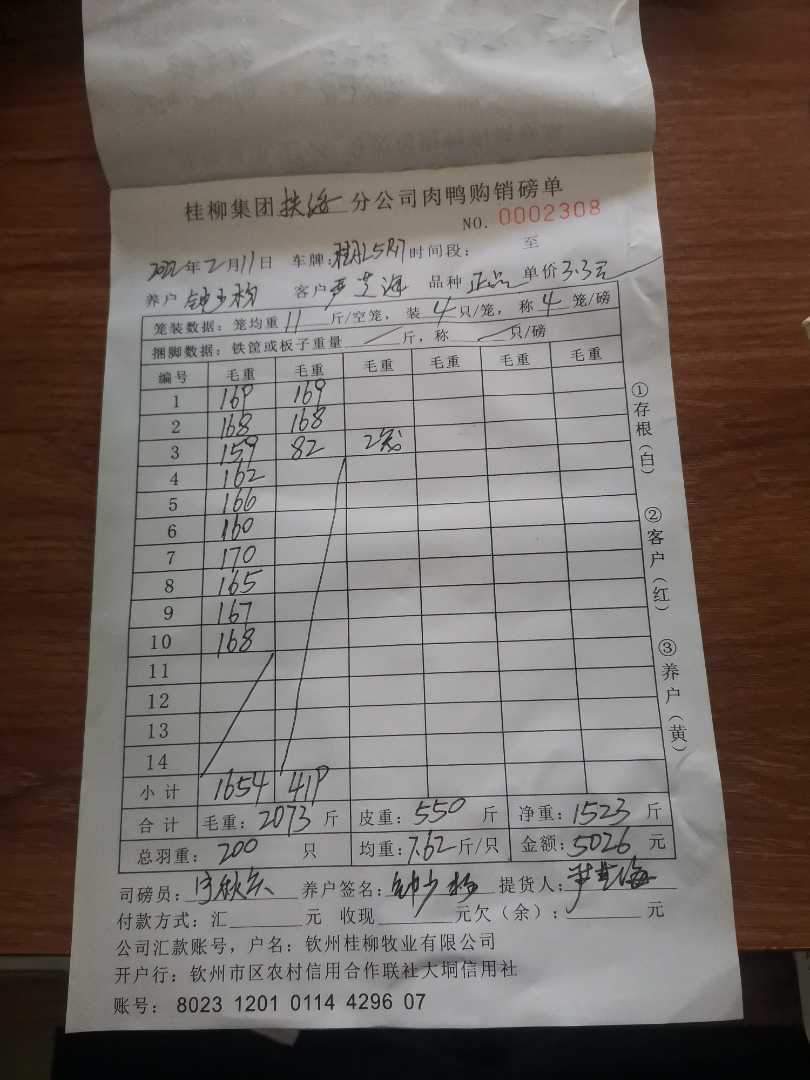 桂柳集团扶绥分公司肉鸭购销磅单
NO. 0002308
2022年2月11日 车牌: 时间段: 至
养户 钟少杨 客户 尹芝海 品种 正品 单价 3.3元
笼装数据: 笼均重 11 斤/空笼, 装 4 只/笼, 称 4 笼/磅
捆脚数据: 铁筐或板子重量 斤, 称 只/磅
编号 毛重 毛重 毛重 毛重 毛重 毛重
1 169 169
2 168 168
3 159 82 2笼
4 162
5 166
6 160
7 170
8 165
9 167
10 168
11
12
13
14
小计 1654 419
合计 毛重: 2073 斤 皮重: 550 斤 净重: 1523 斤
总羽重: 200 只 均重: 7.62 斤/只 金额: 5026 元
司磅员: 养户签名: 钟少杨 提货人: 尹芝海
付款方式: 汇 元 收现 元欠(余): 元
公司汇款账号, 户名: 钦州桂柳牧业有限公司
开户行: 钦州市区农村信用合作联社大垌信用社
账号: 8023 1201 0114 4296 07
①存根(白)
②客户(红)
③养户(黄)